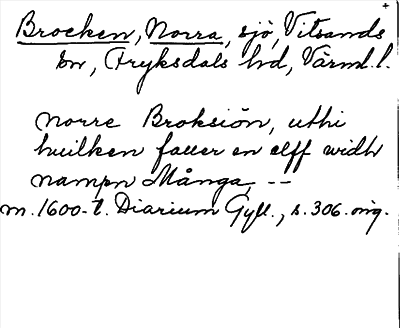 Brocken, Norra, sjö, Vitsands
sn, Fryksdals hd, Värml. l.
norre Broksiön, uthi
huilken faller en elff widh
nampn Många, --
m. 1600-t. Diarium Gyll., s. 306. orig.